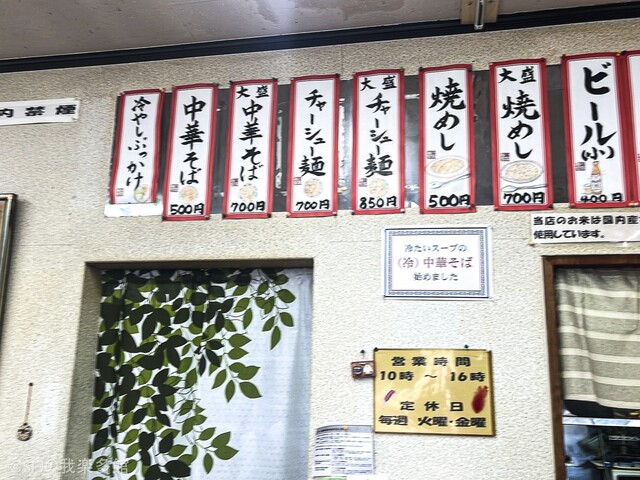 内禁煙
冷やしぶっかけ
中華そば
500円
大盛
中華そば
700円
チャーシュー麺
700円
大盛
チャーシュー麺
850円
焼めし
500円
大盛
焼めし
700円
ビール(小)
400円
当店のお米は国内産
使用しています。
冷たいスープの
(冷)中華そば
始めました
営業時間
10時 ～ 16時
定休日
毎週 火曜・金曜